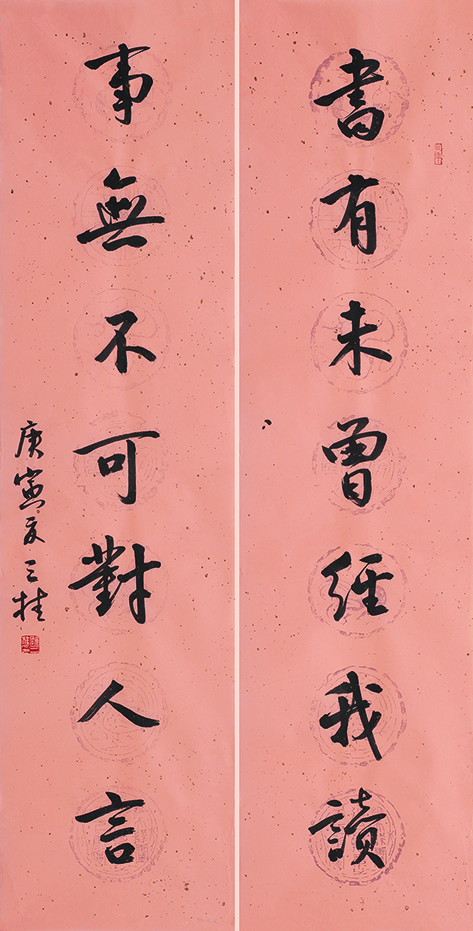 書有未曾經我讀
事無不可對人言
庚寅夏三桂